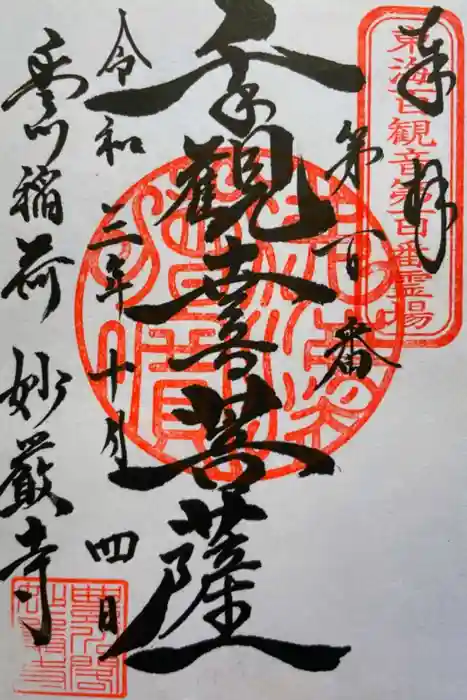 奉拝
東海百観音第百番霊場
第百番
千手觀音菩薩
令和三年十月四日
豊川稲荷 妙厳寺